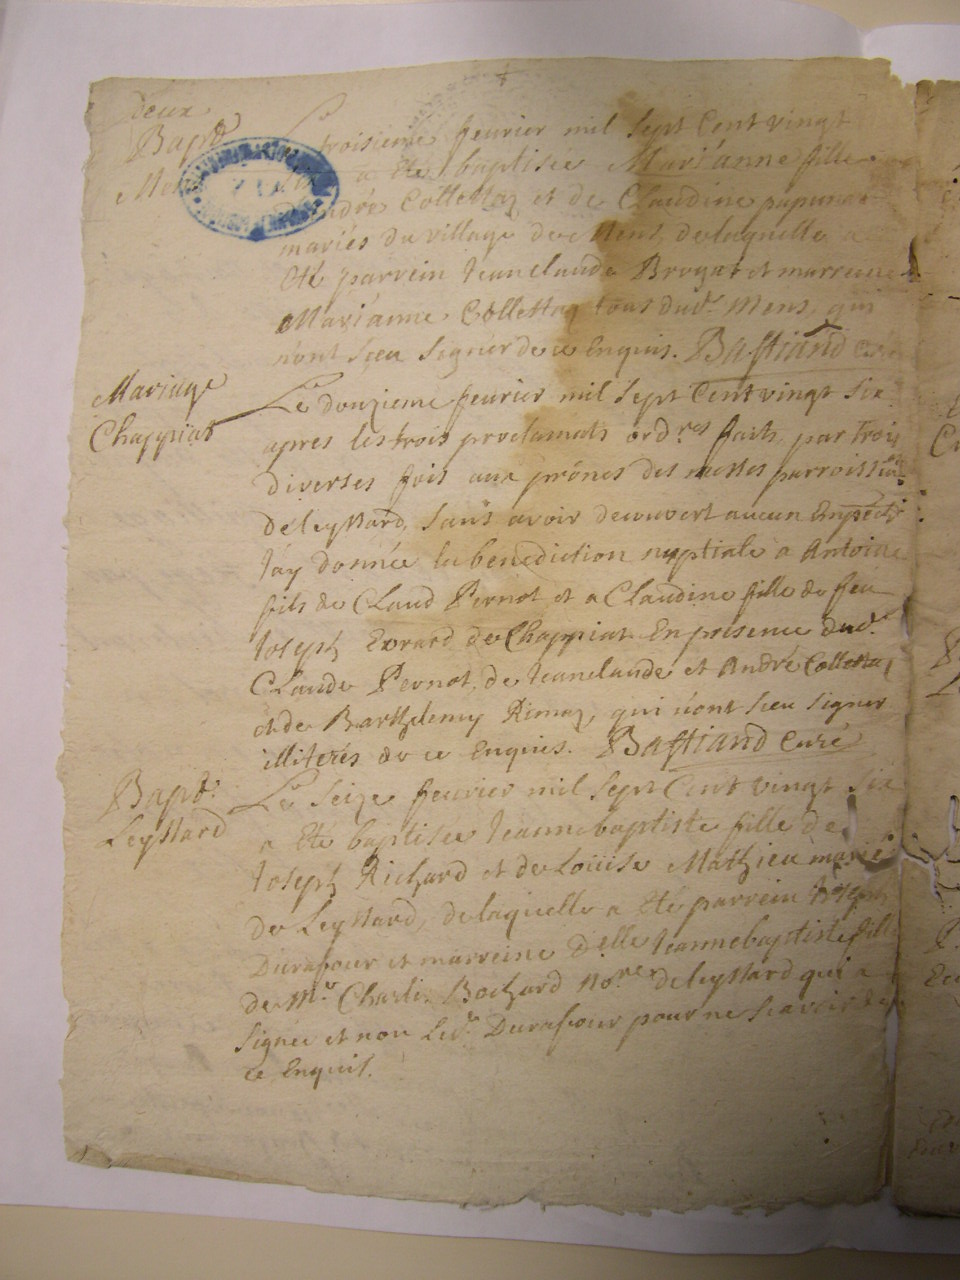 deux
Bapt.
Mens
Le troisieme feurier mil sept Cent vingt
a eté baptisée Mari'anne fille
d'andré Collettaz et de Claudine
mariés du village de Mens, delaquelle a
eté parrein Jeanclaude Broyat et marreine
Mari'anne Collettaz tous dud. Mens, qui
n'ont sceu signer de ce Enquis. Bastiand Curé
Mariage
Chappiat
Le douzieme feurier mil sept Cent vingt six
apres les trois proclamats ord.res faits, par trois
diverses fois aux prônes des messes parroissia.
de leyssard, sans avoir decouvert aucun Enpech.
J'ay donnée la benediction nuptiale a Antoine
fils de Claud Pernot, et a Claudine fille de feu
Joseph Evrard de Chappiat En presence dud.
Claude Pernot, de Jeanclaude et André Collettaz
et de Barthelemy Rimaz, qui n'ont sceu signer
illiterés de ce Enquis. Bastiand Curé
Bapt.
Leyssard
Le seize feurier mil sept Cent vingt six
a eté baptisée Jeannebaptiste fille de
Joseph Richard et de Loüise Mathieu mariés
de Leyssard, delaquelle a eté parrein Joseph
Durafour et marreine D.elle Jeannebaptiste fille
de M.r Charle Bochard No.re de leyssard qui a
signée et non Led. Durafour pour ne scavoir de
ce Enquis.